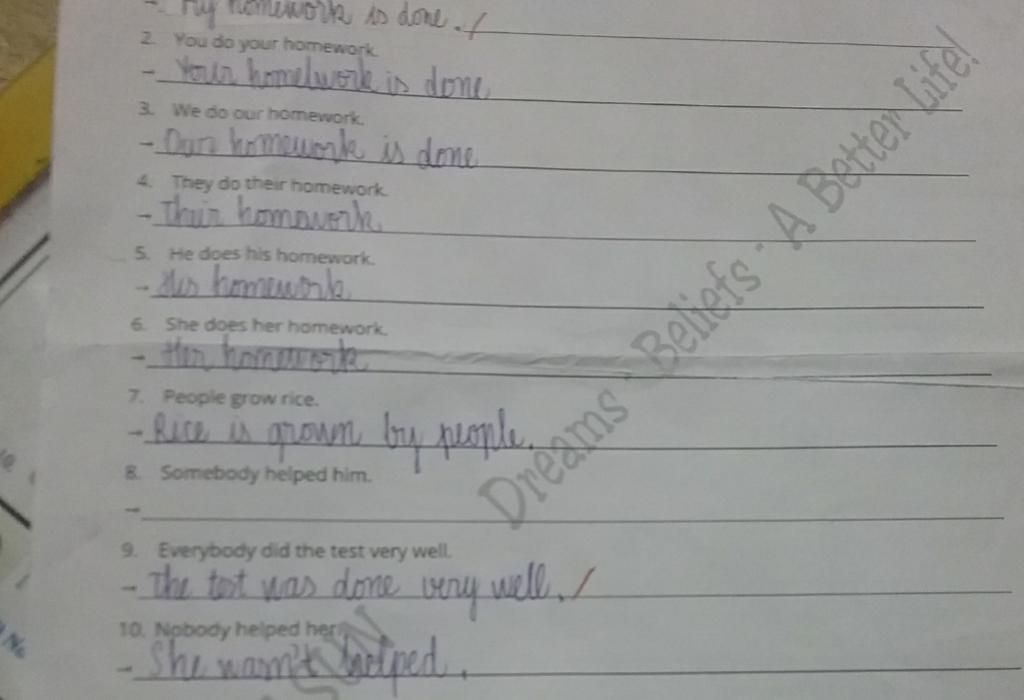 - My homework is done.
2. You do your homework.
- Your homework is done
3. We do our homework.
- Our homework is done
4. They do their homework.
- Their homework
5. He does his homework.
- His homework
6. She does her homework.
- Her homework
7. People grow rice.
- Rice is grown by people.
8. Somebody helped him.
-
9. Everybody did the test very well.
- The test was done very well.
10. Nobody helped her.
- She wasn't helped.
Dreams - Beliefs - A Better Life!